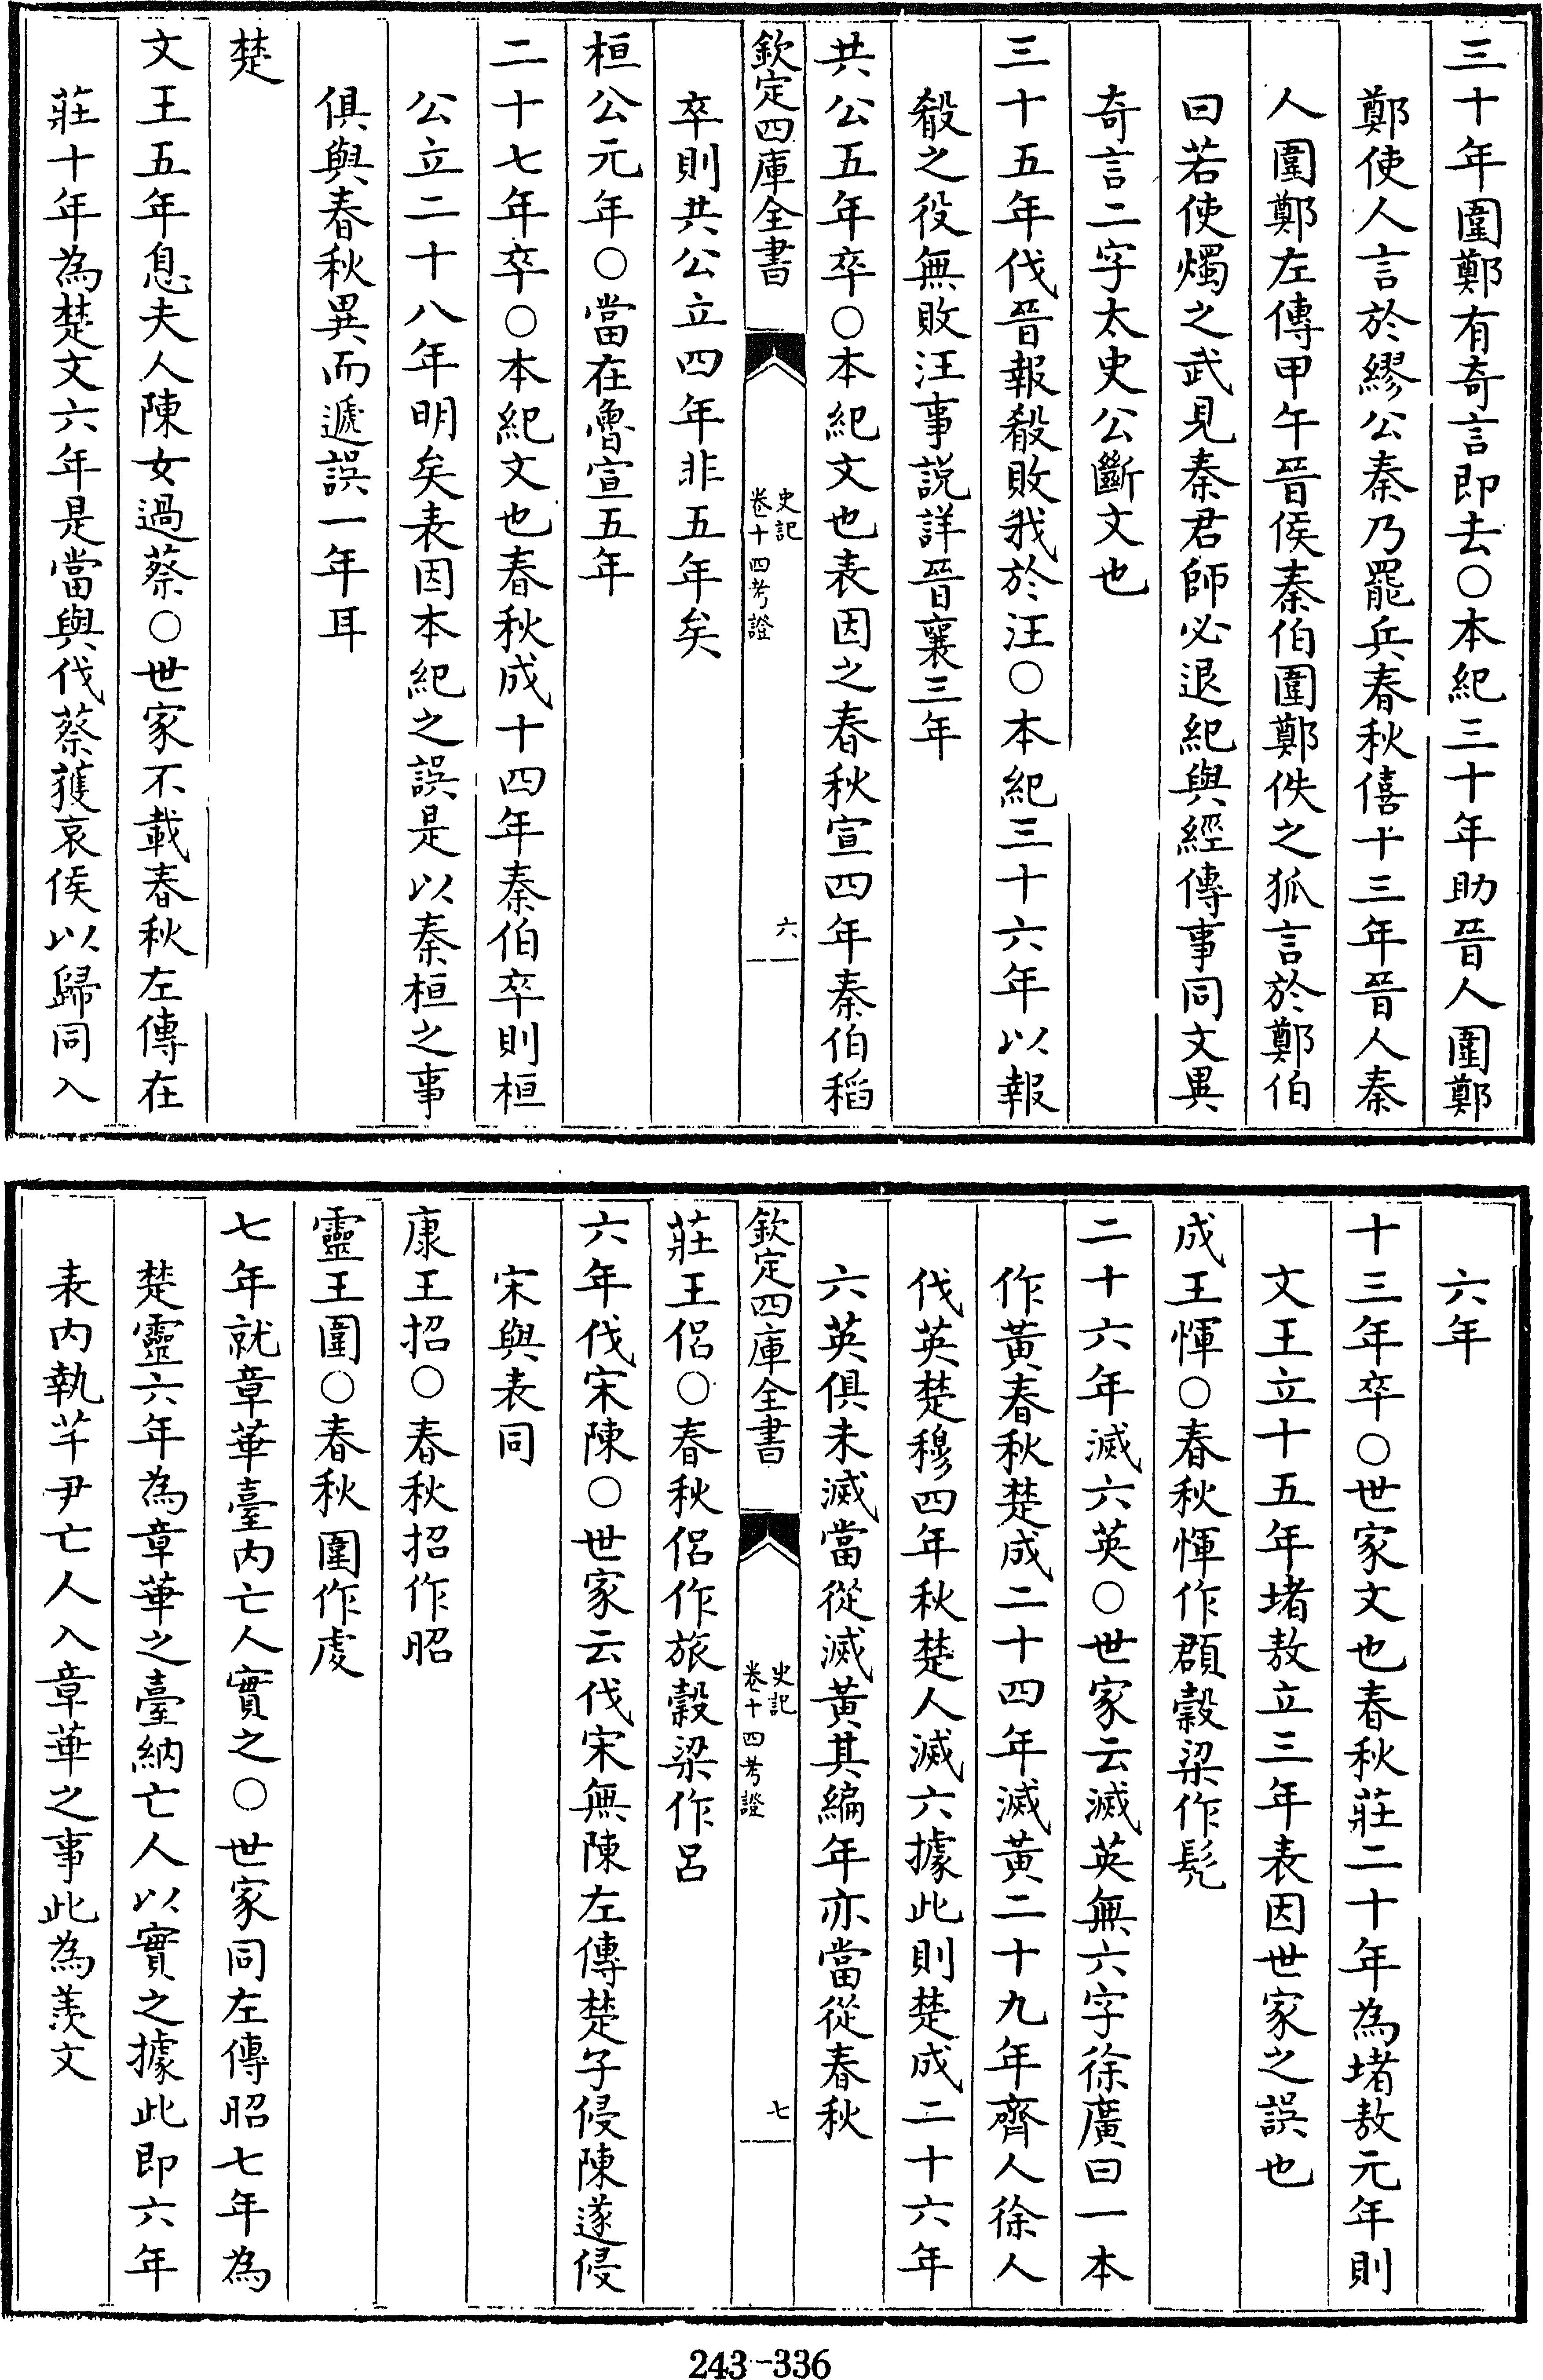 三十年圍鄭有奇言即去○本紀三十年助晉人圍鄭
鄭使人言於繆公秦乃罷兵春秋僖十三年晉人秦
人圍鄭左傳甲午晉侯秦伯圍鄭佚之狐言於鄭伯
曰若使燭之武見秦君師必退紀與經傳事同文異
奇言二字太史公斷文也
三十五年伐晉報殽敗我於汪○本紀三十六年以報
殽之役無敗汪事説詳晉襄三年
共公五年卒○本紀文也表因之春秋宣四年秦伯稻
欽定四庫全書
史記
卷十四考證
六
卒則共公立四年非五年矣
桓公元年○當在魯宣五年
二十七年卒○本紀文也春秋成十四年秦伯卒則桓
公立二十八年明矣表因本紀之誤是以秦桓之事
俱與春秋異而遞誤一年耳
楚
文王五年息夫人陳女過蔡○世家不載春秋左傳在
莊十年為楚文六年是當與伐蔡獲哀侯以歸同入
六年
十三年卒○世家文也春秋莊二十年為堵敖元年則
文王立十五年堵敖立三年表因世家之誤也
成王惲○春秋惲作頵穀梁作髡
二十六年滅六英○世家云滅英無六字徐廣曰一本
作黃春秋楚成二十四年滅黃二十九年齊人徐人
伐英楚穆四年秋楚人滅六據此則楚成二十六年
六英俱未滅當從滅黃其編年亦當從春秋
欽定四庫全書
史記
卷十四考證
七
莊王侶○春秋侶作旅穀梁作呂
六年伐宋陳○世家云伐宋無陳左傳楚子侵陳遂侵
宋與表同
康王招○春秋招作昭
靈王圍○春秋圍作虔
七年就章華臺内亡人實之○世家同左傳昭七年為
楚靈六年為章華之臺納亡人以實之據此即六年
表内執芊尹亡人入章華之事此為羨文
243-336